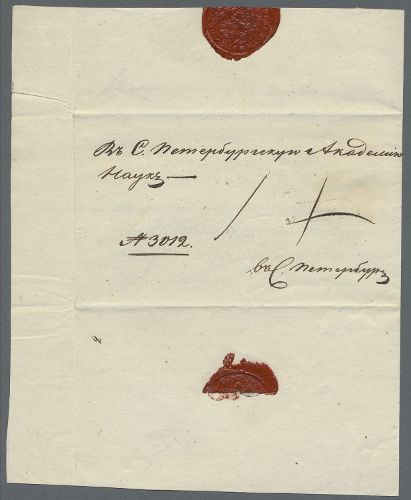 Въ С. Петербургскую Академію
Наукъ —
№ 3012.
въ С. Петербургъ